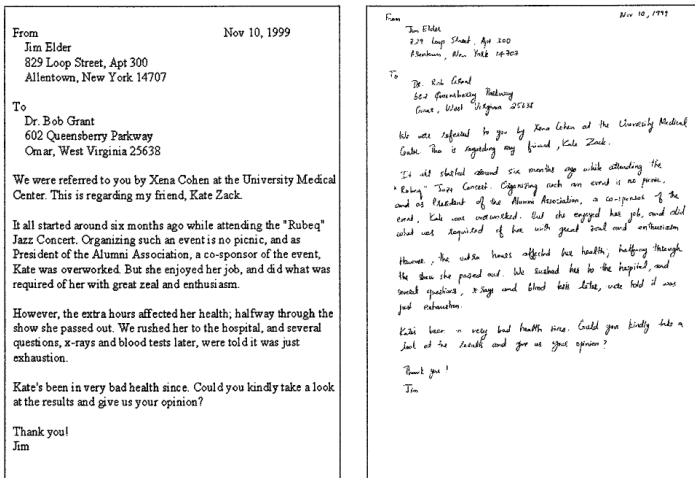 From Nov 10, 1999
Jim Elder
829 Loop Street, Apt 300
Allentown, New York 14707
To
Dr. Bob Grant
602 Queensberry Parkway
Omar, West Virginia 25638
We were referred to you by Xena Cohen at the University Medical
Center. This is regarding my friend, Kate Zack.
It all started around six months ago while attending the "Rubeq"
Jazz Concert. Organizing such an event is no picnic, and as
President of the Alumni Association, a co-sponsor of the event,
Kate was overworked. But she enjoyed her job, and did what was
required of her with great zeal and enthusiasm.
However, the extra hours affected her health; halfway through the
show she passed out. We rushed her to the hospital, and several
questions, x-rays and blood tests later, were told it was just
exhaustion.
Kate's been in very bad health since. Could you kindly take a look
at the results and give us your opinion?
Thank you!
Jim
From Nov 10, 1999
Jim Elder
829 Loop Street, Apt 300
Allentown, New York 14707
To
Dr. Bob Grant
602 Queensberry Parkway
Omar, West Virginia 25638
We were referred to you by Xena Cohen at the University Medical
Center. This is regarding my friend, Kate Zack.
It all started around six months ago while attending the
"Rubeq" Jazz Concert. Organizing such an event is no picnic,
and as President of the Alumni Association, a co-sponsor of the
event, Kate was overworked. But she enjoyed her job, and did
what was required of her with great zeal and enthusiasm.
However, the extra hours affected her health; halfway through
the show she passed out. We rushed her to the hospital, and
several questions, x-rays and blood tests later, were told it was
just exhaustion.
Kate's been in very bad health since. Could you kindly take a
look at the results and give us your opinion?
Thank you!
Jim